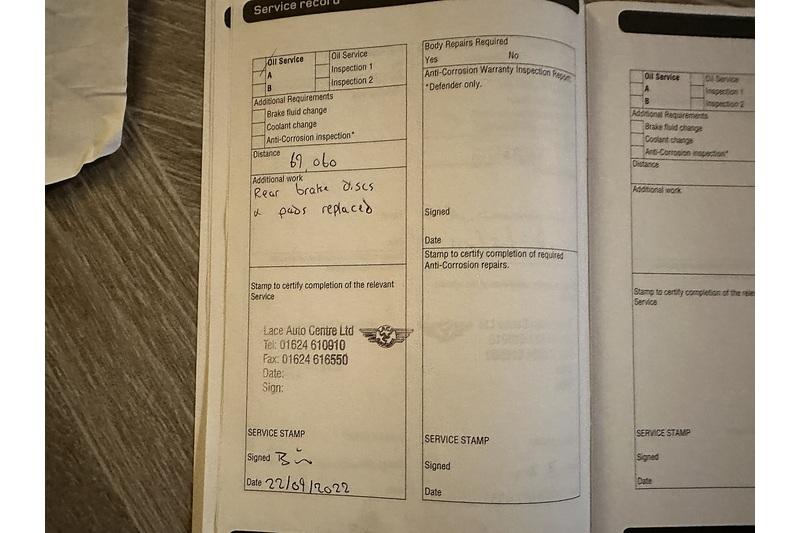 Service record
Oil Service
A
B
Oil Service
Inspection 1
Inspection 2
Additional Requirements
Brake fluid change
Coolant change
Anti-Corrosion inspection*
Distance 69,060
Additional work
Rear brake discs
& pads replaced
Stamp to certify completion of the relevant
Service
Lace Auto Centre Ltd
Tel: 01624 610910
Fax: 01624 616550
Date:
Sign:
SERVICE STAMP
Signed
Date 22/09/2022
Body Repairs Required
Yes No
Anti-Corrosion Warranty Inspection Report
*Defender only.
Signed
Date
Stamp to certify completion of required
Anti-Corrosion repairs.
SERVICE STAMP
Signed
Date
Oil Service
A
B
Oil Service
Inspection 1
Inspection 2
Additional Requirements
Brake fluid change
Coolant change
Anti-Corrosion inspection*
Distance
Additional work
Stamp to certify completion of the rele
Service
SERVICE STAMP
Signed
Date